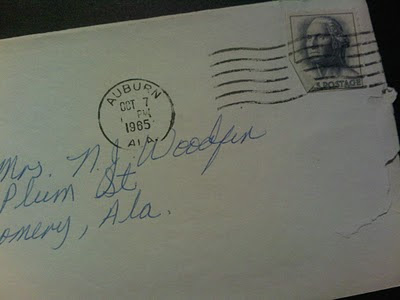 AUBURN
OCT 7
PM
1965
ALA.
S. POSTAGE
Mrs. N.J. Woodfin
Plum St.
omery, Ala.